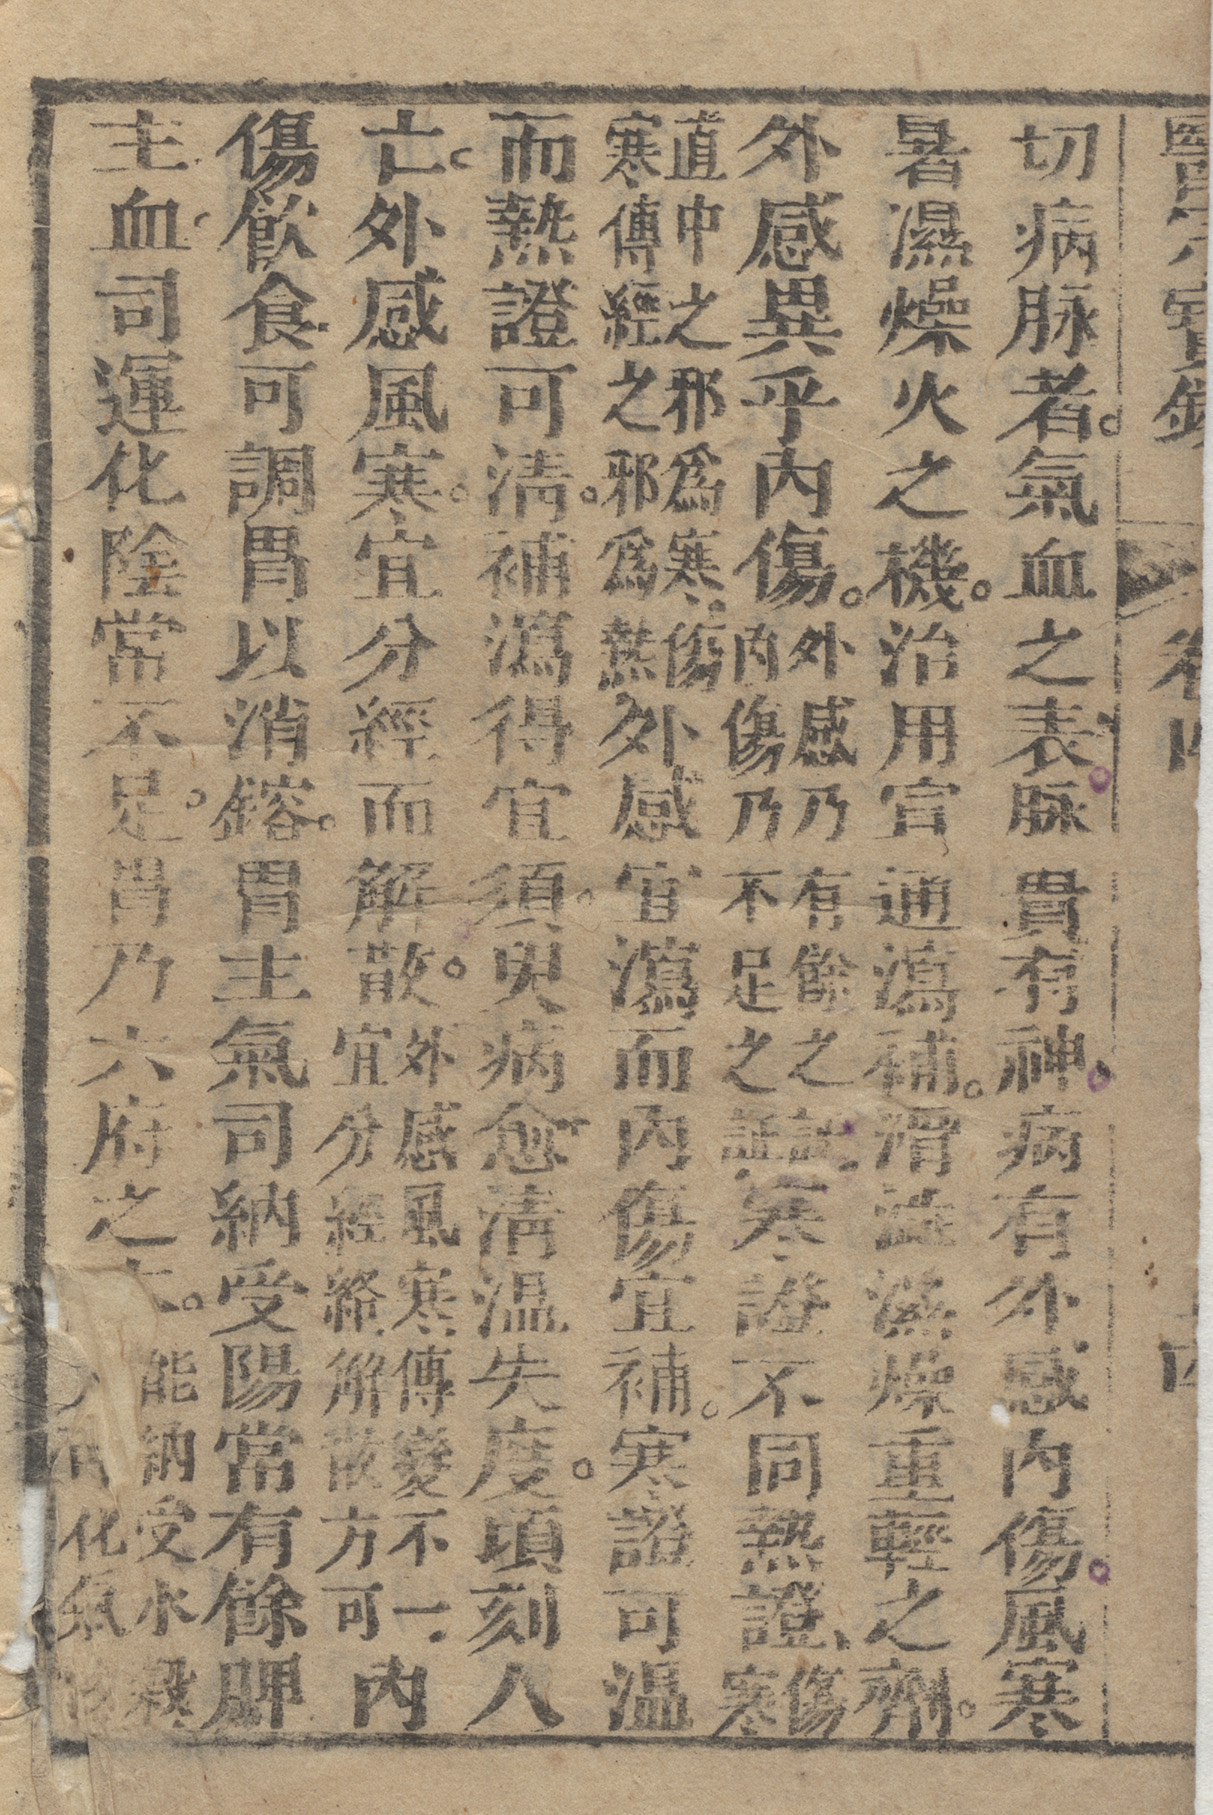 卷四
切病脉者氣血之表脉貴有神病有外感内傷風寒
暑濕燥火之機治用宣通瀉補滑澁濕燥重輕之劑
外感異乎内傷外感乃有餘之証内傷乃不足之証寒證不同熱證傷寒
直中之邪爲寒傷寒傳經之邪爲熱外感宜瀉而内傷宜補寒證可温
而熱證可清補瀉得宜須臾病愈清温失度頃刻人
亡外感風寒宜分經而解散外感風寒傳變不一宜分經絡解散方可内
傷飲食可調胃以消鎔胃主氣司納受陽常有餘脾
主血司運化陰常不足胃乃六府之能納受水穀化氣